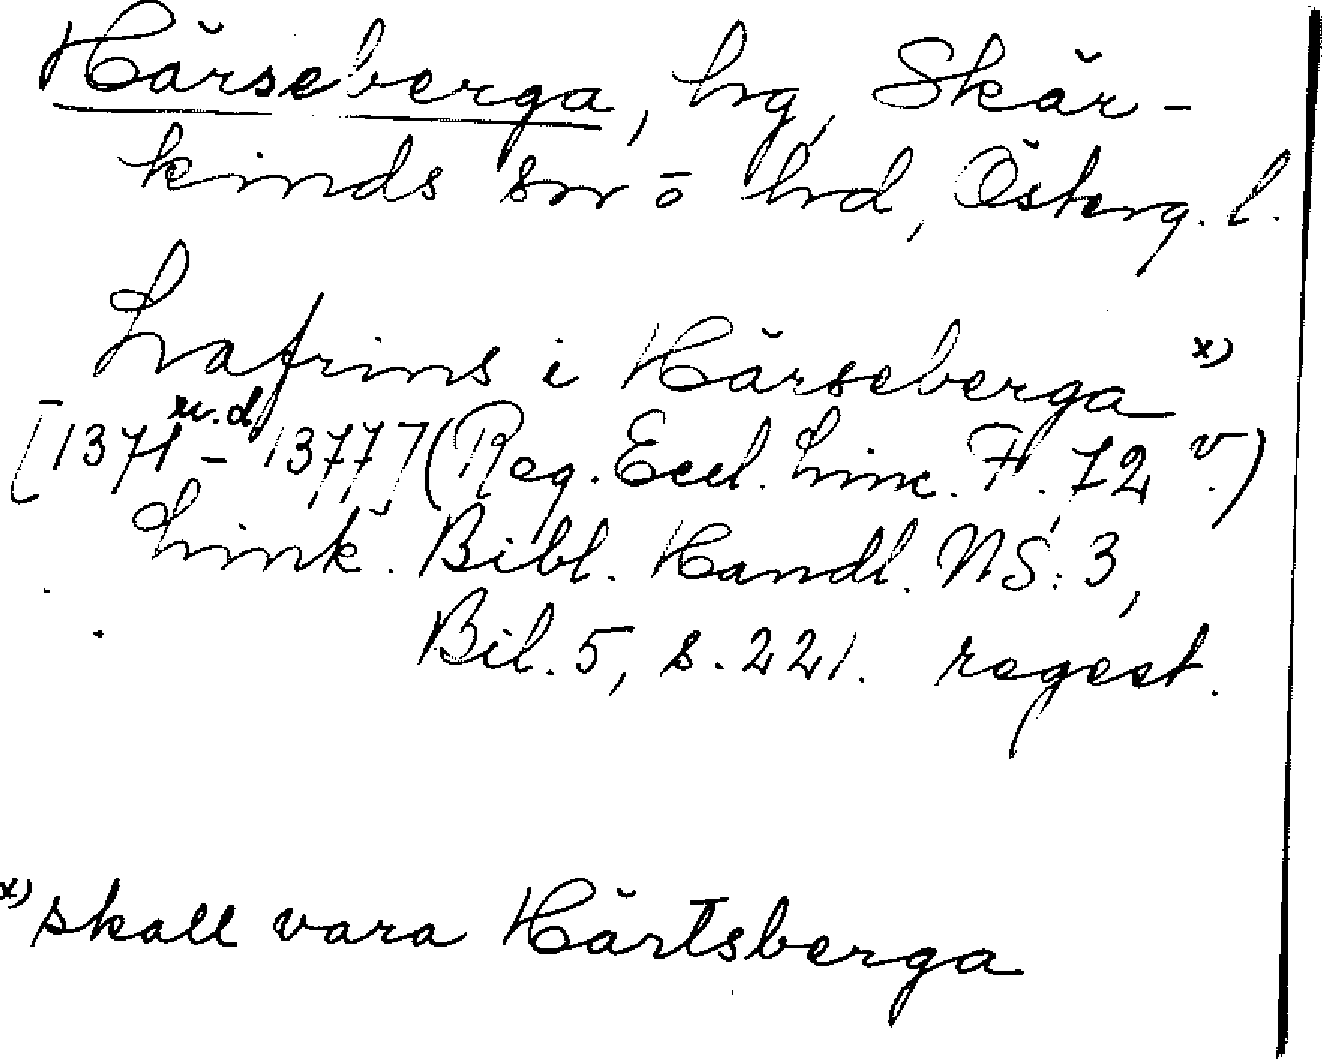 Härseberga, hg, Skär-
kinds sn o hd, Österg. l.
Lafrins i Härseberga x)
[1371 u.d. - 1377] (Reg. Eccl. Linc. F. 72 v.)
Link. Bibl. Handl. NS: 3,
Bil. 5, s. 221. regest.
x) skall vara Härtsberga